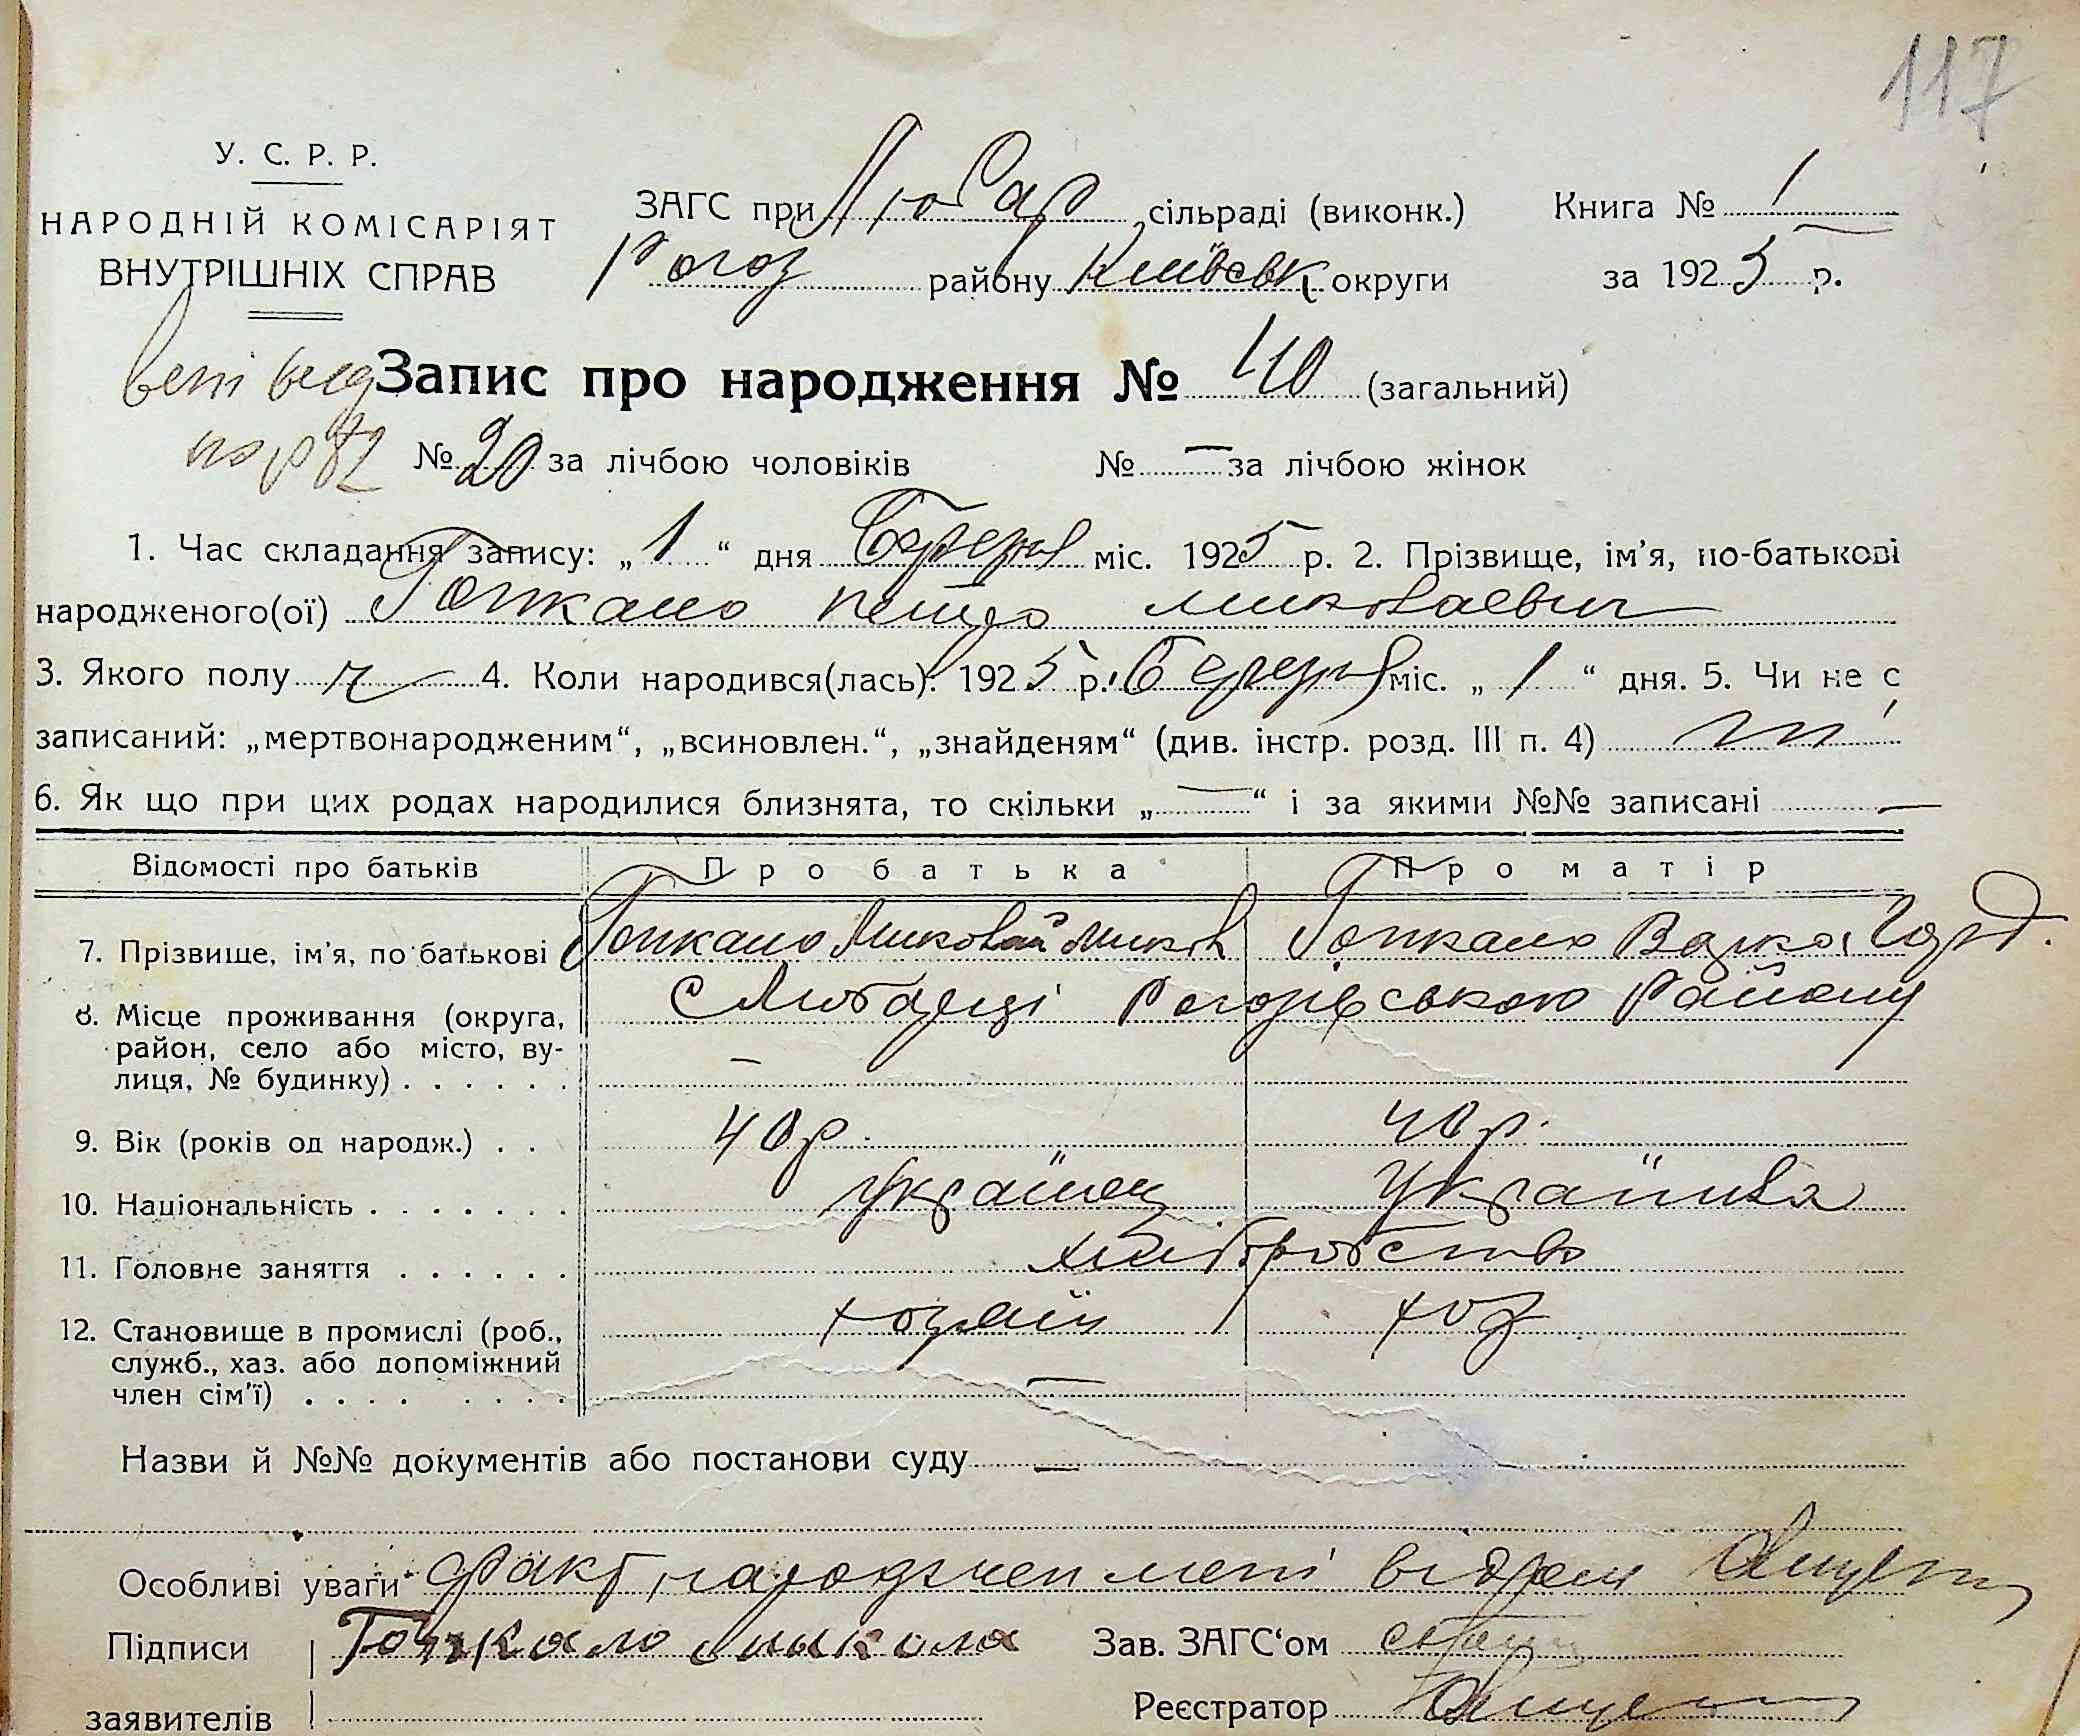 117
У. С. Р. Р.
НАРОДНІЙ КОМІСАРІЯТ
ВНУТРІШНІХ СПРАВ
ЗАГС при Любар сільраді (виконк.) Книга № 1
Рогоз району Київськ округи за 1925 р.
Запис про народження № 40 (загальний)
№ 20 за лічбою чоловіків № — за лічбою жінок
1. Час складання запису: „1“ дня Березня міс. 1925 р. 2. Прізвище, ім'я, по-батькові
народженого(ої) Гопкало Петро Миколаевич
3. Якого полу ч 4. Коли народився(лась): 1925 р. Березня міс. „1“ дня. 5. Чи не є
записаний: „мертвонародженим“, „всиновлен.“, „знайденям“ (див. інстр. розд. III п. 4) ні
6. Як що при цих родах народилися близнята, то скільки „—“ і за якими №№ записані —
Відомості про батьків Про батька Про матір
7. Прізвище, ім'я, по батькові Гопкало Миколай Микол Гопкало Варка Горд.
8. Місце проживання (округа, район, село або місто, вулиця, № будинку) с Любарці Рогозівського Району
—
9. Вік (років од народж.) 40 р. 40 р.
10. Національність Українец Українка
11. Головне заняття хліборобство
12. Становище в промислі (роб., служб., хаз. або допоміжний член сім'ї) хозяїн хоз
—
Назви й №№ документів або постанови суду —
Особливі уваги Факт народження мені відом
Підписи Гопкало Микола Зав. ЗАГС‘ом
заявителів Реєстратор